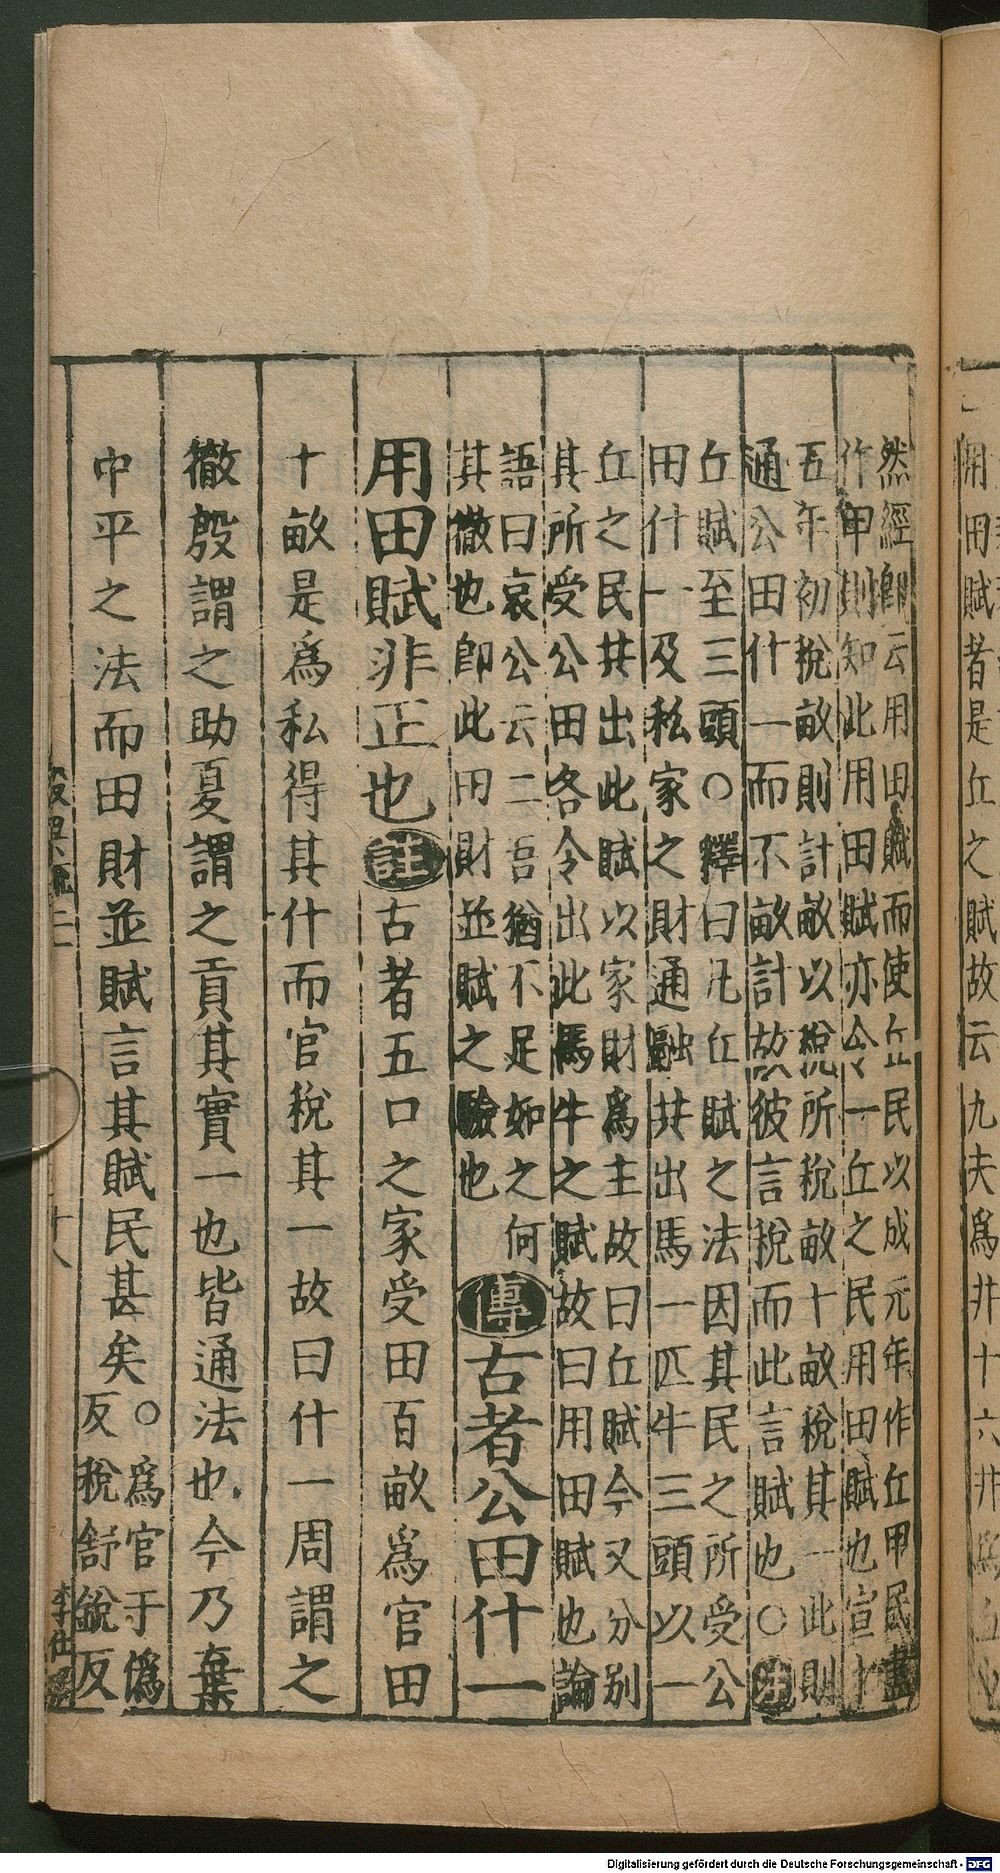 用田賦者是丘之賦故云九夫爲井十六井爲丘
然經即云用田賦而使丘民以成元年作丘甲民盡
作甲則知此用田賦亦令一丘之民用田賦也宣十
五年初稅畝則計畝以稅所稅畝十畝稅其一此則
通公田什一而不畝計故彼言稅而此言賦也○注
丘賦至三頭○釋曰凡丘賦之法因其民之所受公
田什一及私家之財通融共出馬一匹牛三頭以一
丘之民共出此賦以家財爲主故曰丘賦今又分別
其所受公田各令出此馬牛之賦故曰用田賦也論
語曰哀公云二吾猶不足如之何
其徹也即此田財並賦之驗也
傳古者公田什一
用田賦非正也註古者五口之家受田百畝爲官田
十畝是爲私得其什而官稅其一故曰什一周謂之
徹殷謂之助夏謂之貢其實一也皆通法也今乃棄
中平之法而田財並賦言其賦民甚矣○爲官于僞
反稅舒銳反
Digitalisierung gefördert durch die Deutsche Forschungsgemeinschaft - DFG